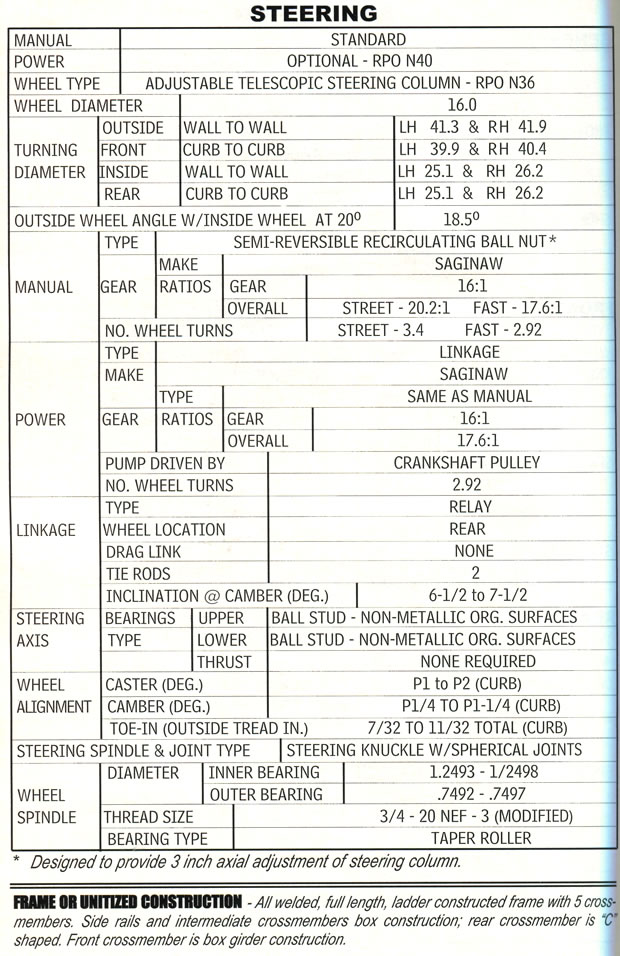 STEERING
MANUAL STANDARD
POWER OPTIONAL - RPO N40
WHEEL TYPE ADJUSTABLE TELESCOPIC STEERING COLUMN - RPO N36
WHEEL DIAMETER 16.0
OUTSIDE WALL TO WALL LH 41.3 & RH 41.9
TURNING FRONT CURB TO CURB LH 39.9 & RH 40.4
DIAMETER INSIDE WALL TO WALL LH 25.1 & RH 26.2
REAR CURB TO CURB LH 25.1 & RH 26.2
OUTSIDE WHEEL ANGLE W/INSIDE WHEEL AT 20º 18.5º
TYPE SEMI-REVERSIBLE RECIRCULATING BALL NUT*
MAKE SAGINAW
MANUAL GEAR RATIOS GEAR 16:1
OVERALL STREET - 20.2:1 FAST - 17.6:1
NO. WHEEL TURNS STREET - 3.4 FAST - 2.92
TYPE LINKAGE
MAKE SAGINAW
TYPE SAME AS MANUAL
POWER GEAR RATIOS GEAR 16:1
OVERALL 17.6:1
PUMP DRIVEN BY CRANKSHAFT PULLEY
NO. WHEEL TURNS 2.92
TYPE RELAY
LINKAGE WHEEL LOCATION REAR
DRAG LINK NONE
TIE RODS 2
INCLINATION @ CAMBER (DEG.) 6-1/2 to 7-1/2
STEERING BEARINGS UPPER BALL STUD - NON-METALLIC ORG. SURFACES
AXIS TYPE LOWER BALL STUD - NON-METALLIC ORG. SURFACES
THRUST NONE REQUIRED
WHEEL CASTER (DEG.) P1 to P2 (CURB)
ALIGNMENT CAMBER (DEG.) P1/4 TO P1-1/4 (CURB)
TOE-IN (OUTSIDE TREAD IN.) 7/32 TO 11/32 TOTAL (CURB)
STEERING SPINDLE & JOINT TYPE STEERING KNUCKLE W/SPHERICAL JOINTS
DIAMETER INNER BEARING 1.2493 - 1/2498
WHEEL OUTER BEARING .7492 - .7497
SPINDLE THREAD SIZE 3/4 - 20 NEF - 3 (MODIFIED)
BEARING TYPE TAPER ROLLER
* Designed to provide 3 inch axial adjustment of steering column.
FRAME OR UNITIZED CONSTRUCTION - All welded, full length, ladder constructed frame with 5 cross-
members. Side rails and intermediate crossmembers box construction; rear crossmember is "C"
shaped. Front crossmember is box girder construction.